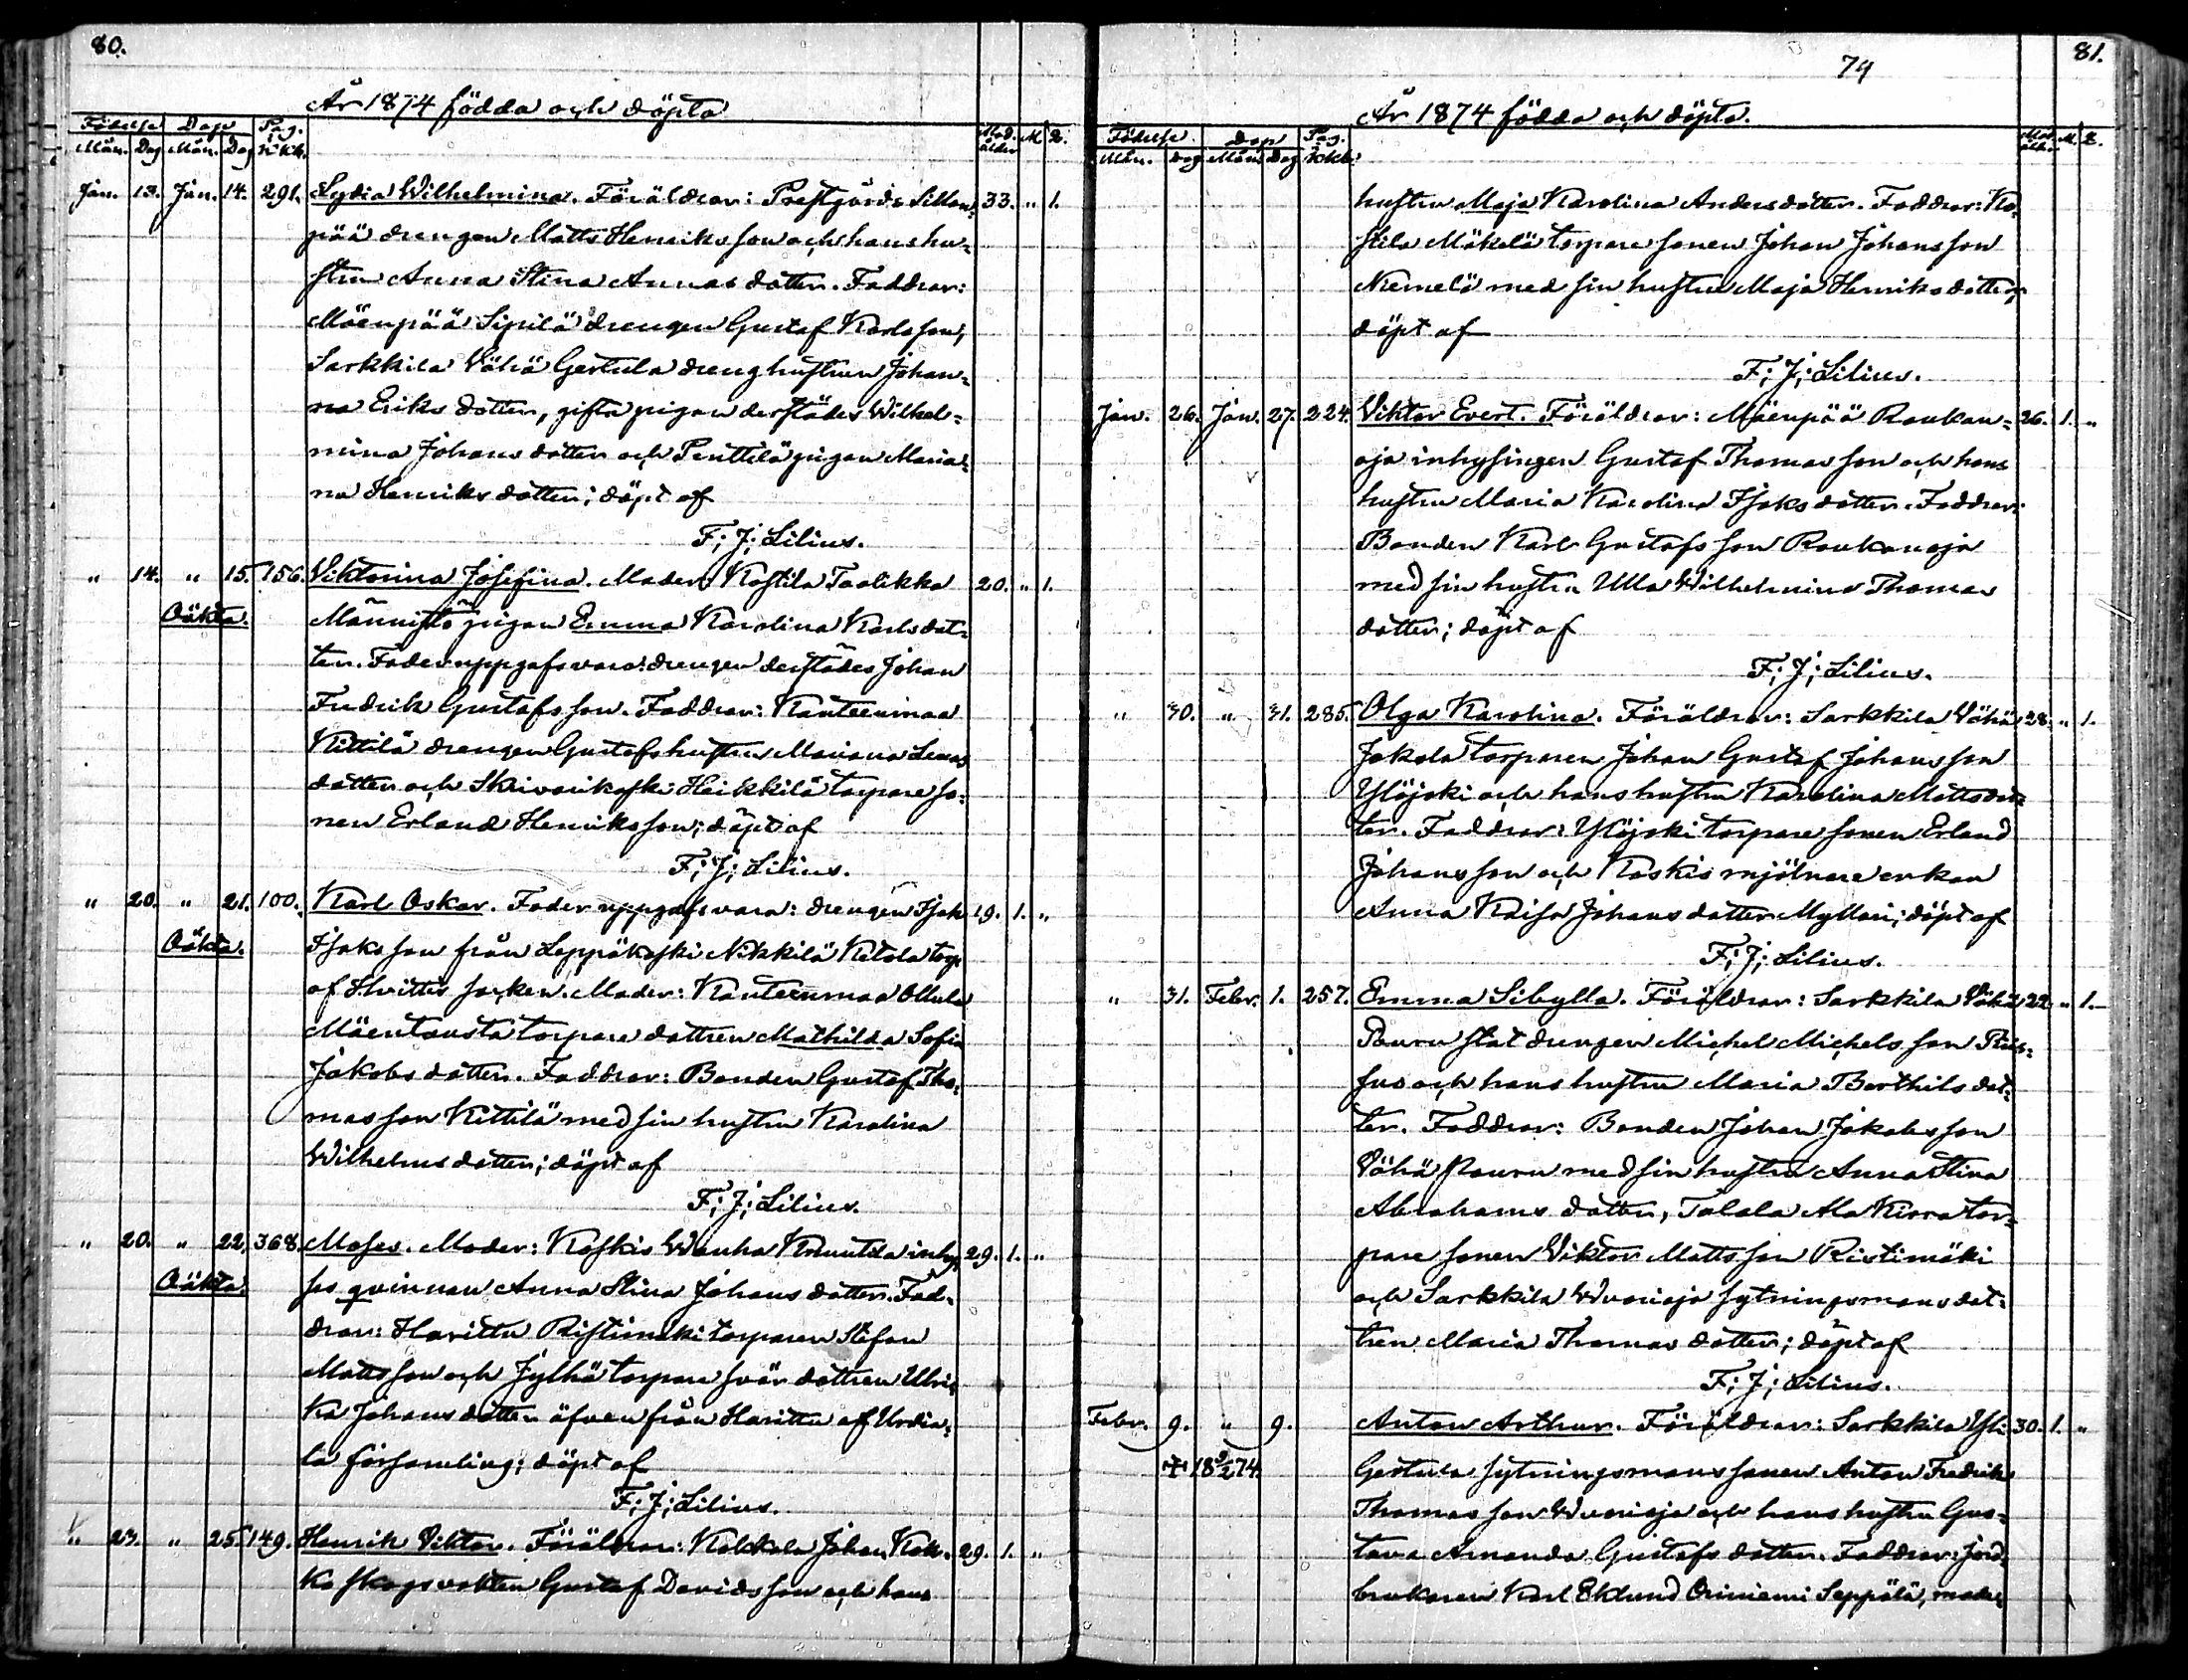 80.
År 1874 födda och döpta
Födelse Dop Pag. i K.b. Mod. ålder M. Q.
Mån. Dag Mån. Dag
Jan. 13. Jan. 14. 291. Lydia Wilhelmina. Föräldrar: Prestgårds Sillan- 33. " 1.
pää drengen Matts Henriksson och hans hu-
stru Anna Stina Annasdotter. Faddrar:
Mäenpää Sipilä drengen Gustaf Karlsson,
Sarkkila Vähä Gertula drenghustrun Johan-
na Eriksdotter, gifta pigan derstädes Wilhel-
mina Johansdotter och Penttilä pigan Maria-
na Henriksdotter; döpt af
F; J; Lilius.
" 14. " 15. 156. Viktorina Josefina. Moder: Kostila Taalikka 20. " 1.
Oäkta. Männistö pigan Emma Karolina Karlsdot-
ter. Fader uppgafs vara: drengen derstädes Johan
Fredrik Gustafsson. Faddrar: Kanteenmaa
Kittilä drengen Gustafs hustru Mariana Lenas
dotter och Skrivarikoski Heikkilä torpare so-
nen Erland Henriksson; döpt af
F; J; Lilius.
" 20. " 21. 100. Karl Oskar. Fader uppgafs vara: drengen Isak 19. 1. "
Oäkta. Isaksson från Leppäkoski Nikkilä Ketola torp
af Hvittis socken. Moder: Kanteenmaa Ollula
Mäentausta torpare dottren Mathilda Sofia
Jakobsdotter. Faddrar: Bonden Gustaf Tho-
masson Kittilä med sin hustru Karolina
Wilhelmsdotter; döpt af
F; J; Lilius.
" 20. " 22. 368. Moses. Moder: Koskis Wanha Knuutila inhy- 29. 1. "
Oäkta. ses qvinnan Anna Stina Johansdotter. Fad-
drar: Haritu Ristimäki torparen Stefan
Mattsson och Jylhä torpare svärdottren Ulri-
ka Johansdotter äfven från Haritu af Urdia-
la församling; döpt af
F; J; Lilius.
" 23. " 25. 149. Henrik Viktor. Föräldrar: Kokkola Johan Kok- 29. 1. "
ko skogsvakten Gustaf Davidsson och hans
81.
79
År 1874 födda och döpta.
Födelse. Dop Pag. i Kkb. Mod. ålder M. Q.
Mån. Dag Mån. Dag
hustru Maja Karolina Andersdotter. Faddrar: Ko-
stila Mäkelä torpare sonen Johan Johansson
Niemelä med sin hustru Maja Henriksdotter;
döpt af
F; J; Lilius.
Jan. 26. Jan. 27. 224. Viktor Evert. Föräldrar: Mäenpää Raukan- 26. 1. "
oja inhysingen Gustaf Thomasson och hans
hustru Maria Karolina Isaksdotter. Faddrar:
Bonden Karl Gustafsson Raukanoja
med sin hustru Ulla Wilhelmina Thomas
dotter; döpt af
F; J; Lilius.
" 30. " 31. 285. Olga Karolina. Föräldrar: Sarkkila Vähä 28. " 1.
Jakola torparen Johan Gustaf Johansson
Ylöjoki och hans hustru Karolina Mattsdot-
ter. Faddrar: Ylöjoki torpare sonen Erland
Johansson och Koskis mjölnare enkan
Anna Kaisa Johansdotter Myllari; döpt af
F; J; Lilius.
" 31. Febr. 1. 257. Emma Sibylla. Föräldrar: Sarkkila Vähä 22. " 1.
Pauru statdrengen Michel Michelsson
och hans hustru Maria Berthilsdot-
ter. Faddrar: Bonden Johan Jakobsson
Vähä Pauru med sin hustru Anna Stina
Abrahamsdotter, Talala Ala Kirra tor-
pare sonen Viktor Mattsson Ristimäki
och Sarkkila Wuorioja sytningsmansdot-
tren Maria Thomasdotter; döpt af
F; J; Lilius.
Febr. 9. " 9. Anton Arthur. Föräldrar: Sarkkila Yli 30. 1. "
+ 18 9/2 74. Gertula sytningsmanssonen Anton Fredrik
Thomasson Wuorioja och hans hustru Gus-
tava Amanda Gustafsdotter. Faddrar: Jord-
brukaren Karl Eklund Oriniemi Seppälä, mode-